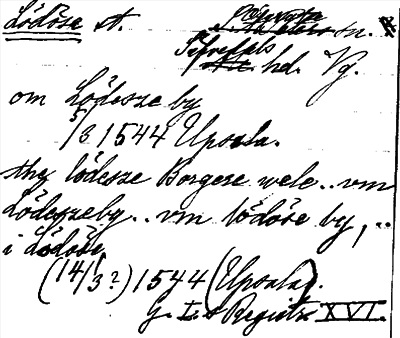 Lödöse st. sn.
Sifvedals hd. Vg.
om Lödesze by
5/3 1544 Upsala.
the lödesze Borgere wele .. vm
Lödeszeby .. vm lödöse by, ..
i Lödöse
(14/3?) 1544 (Upsala).
G. I.s Registr XVI.